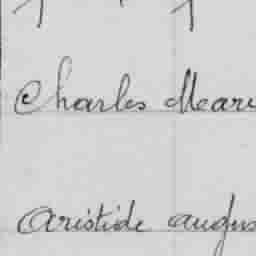 Charles Mari
Aristide augus